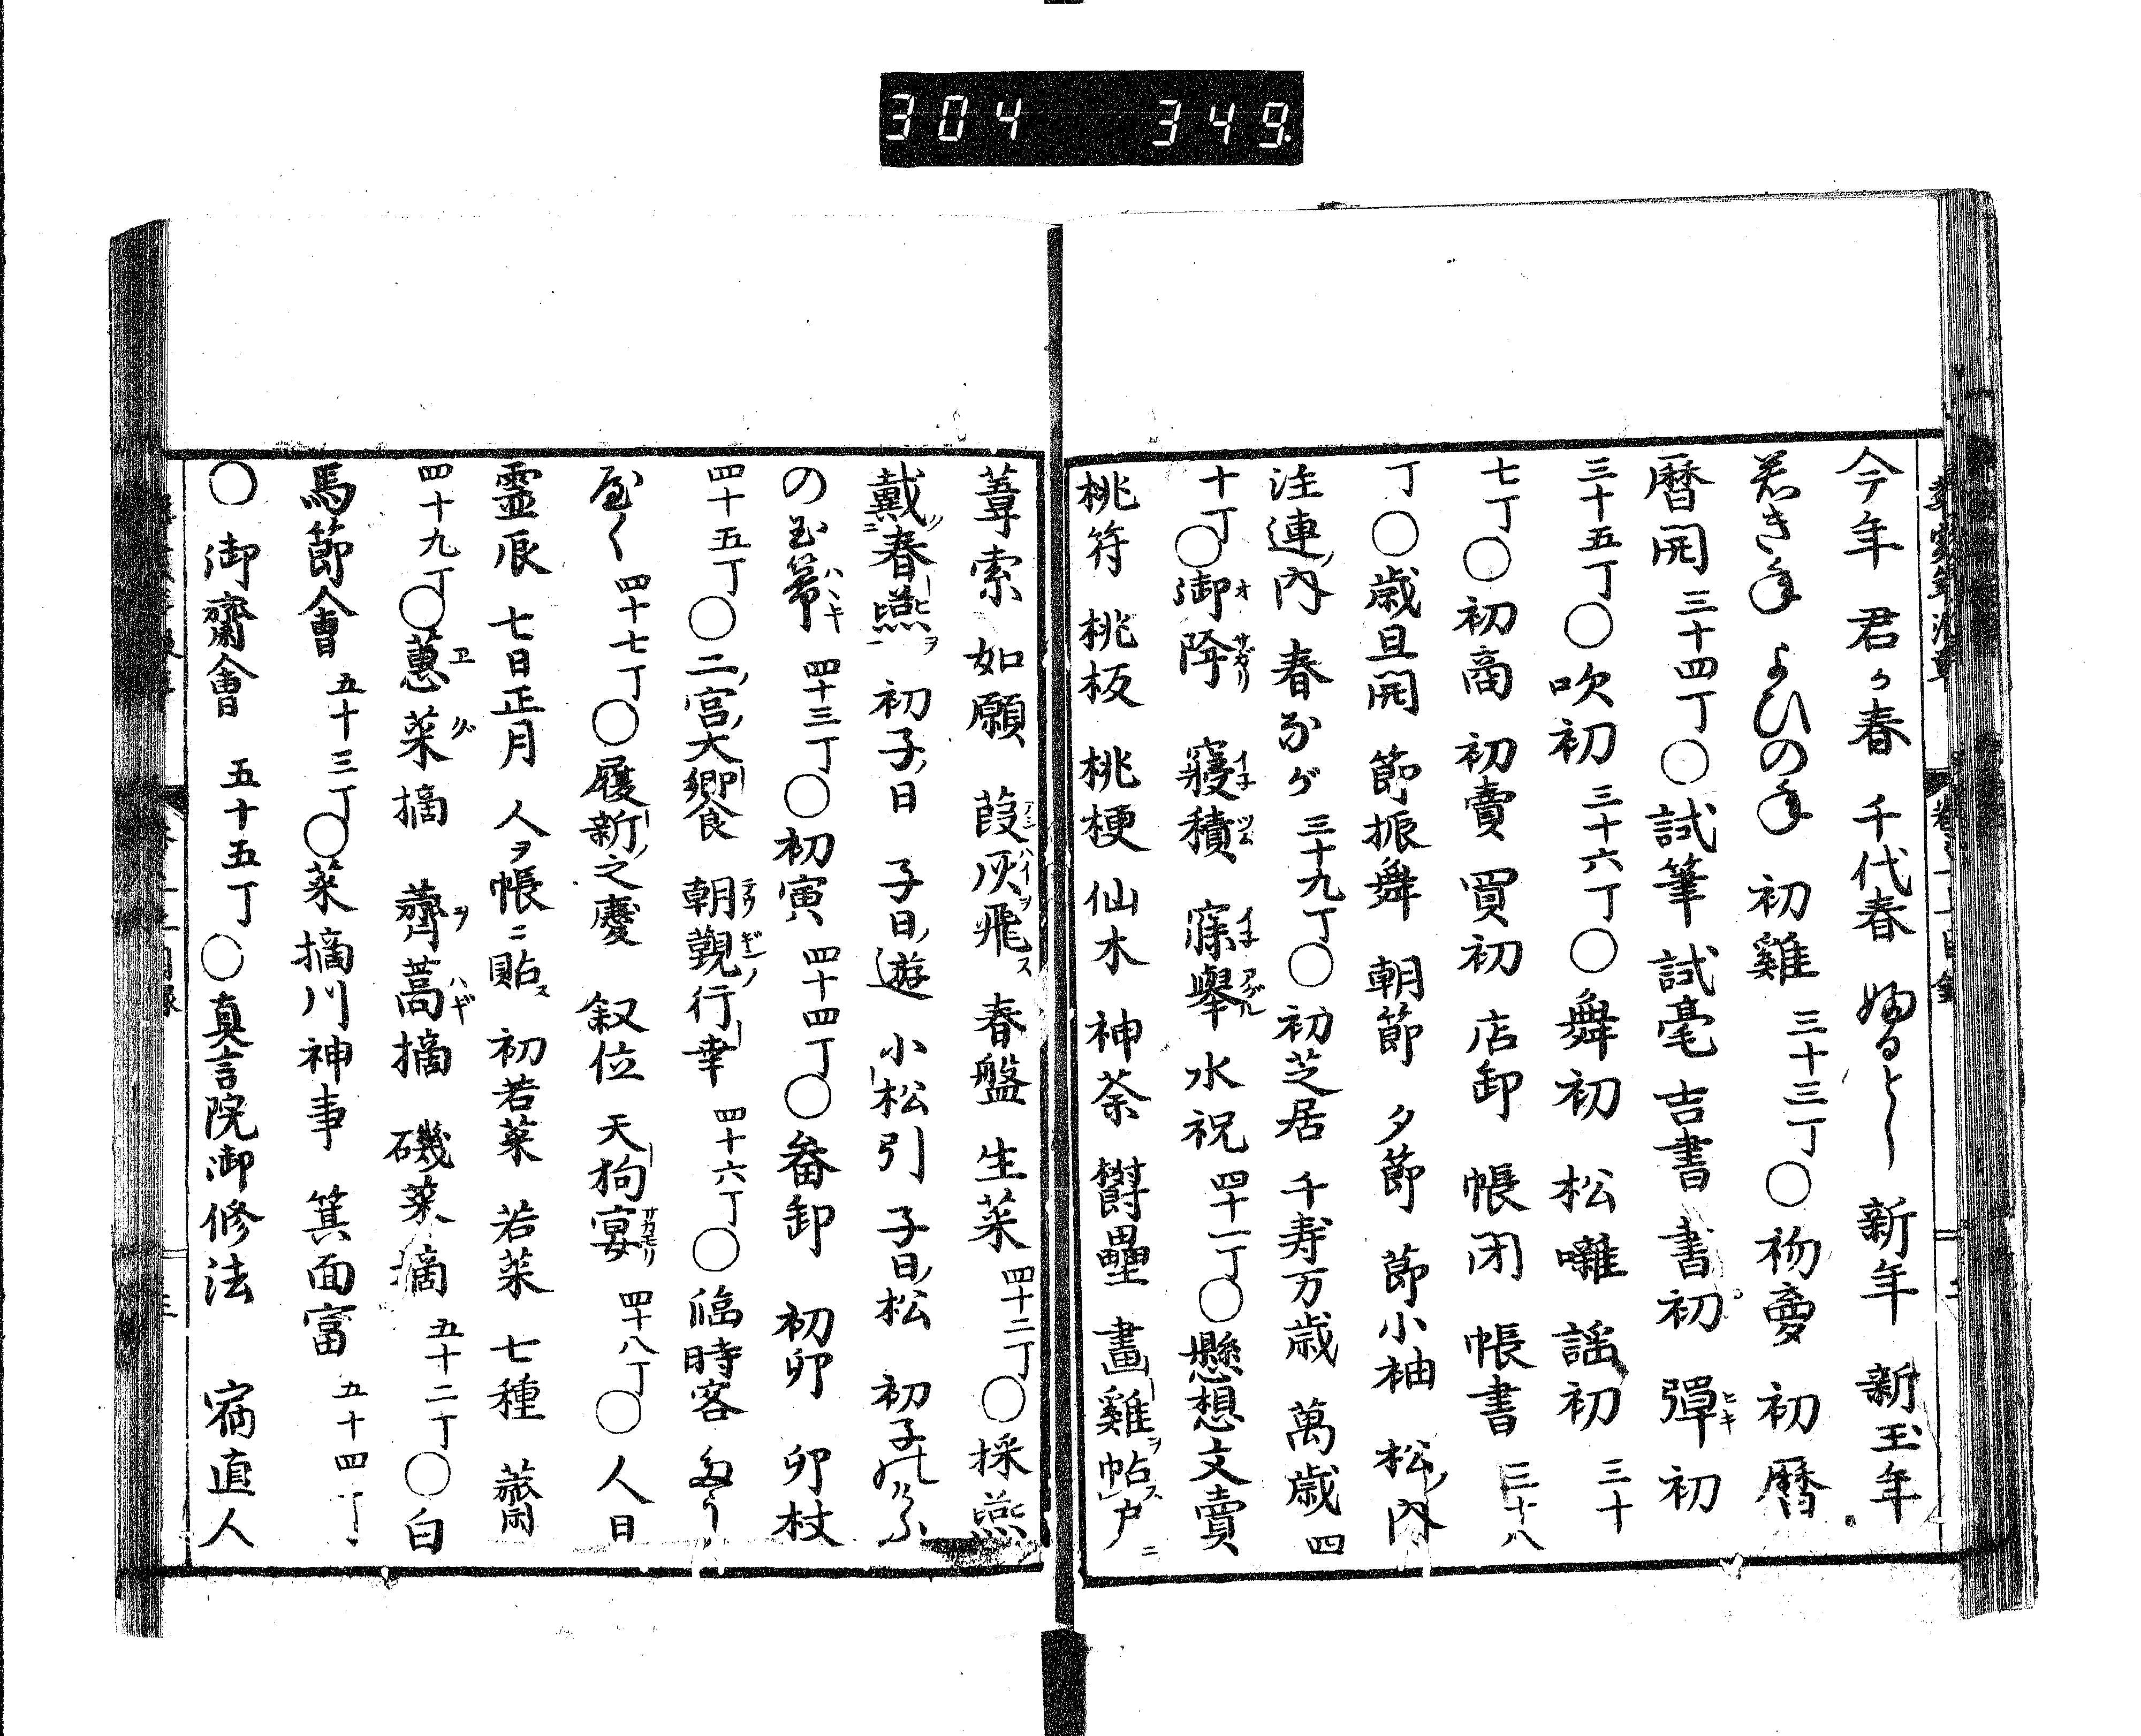 304 349
今年 君か春 千代春 ゆるとし 新年 新玉年
若き年 よひの年 初雞 三十三丁○初夢 初暦
暦開 三十四丁○試筆 試毫 吉書 書初 彈初
三十五丁○吹初 三十六丁○舞初 松囃 謡初 三十
七丁○初商 初賣 買初 店卸 帳閉 帳書 三十八
丁○歳旦開 節振舞 朝節 夕節 節小袖 松ノ內
注連ノ內 春ながゞ 三十九丁○初芝居 千寿万歳 萬歳 四
十丁○御降 寢積 寐舉 水祝 四十一丁○懸想文賣
桃符 桃板 桃梗 仙木 神荼 欝壘 畫雞ヲ帖ス戸ニ
葦索 如願 葭灰飛ス 春盤 生菜 四十二丁○採燕
戴春燕ヲ 初子ノ日 子日ノ遊 小松引 子日ノ松 初子のけふ
の玉箒 四十三丁○初寅 四十四丁○畚卸 初卯 卯杖
四十五丁○二ノ宮ノ大饗 朝覲ノ行幸 四十六丁○臨時客
四十七丁○履新ノ之慶 叙位 天狗宴 四十八丁○人日
靈辰 七日正月 人ヲ帳ニ貼ス 初若菜 若菜 七種 薺
四十九丁○蕙菜摘 薺蒿摘 磯菜摘 五十二丁○白
馬節會 五十三丁○菜摘川神事 箕面富 五十四丁
○御齋會 五十五丁○真言院御修法 宿直人